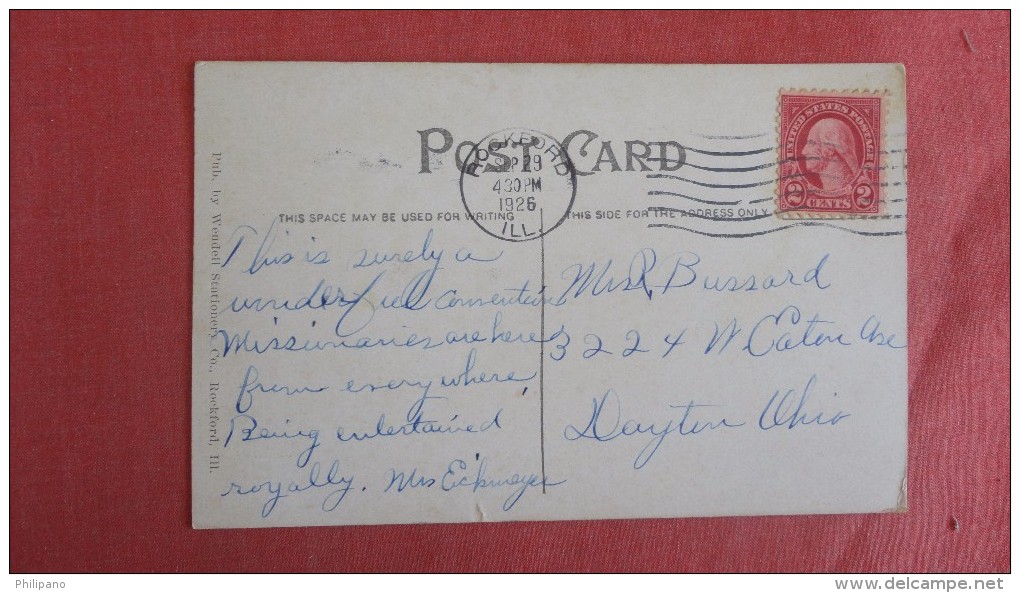 POST CARD
ROCKFORD
SEP 29
4 30 PM
1926
ILL.
UNITED STATES POSTAGE
2 CENTS 2
THIS SPACE MAY BE USED FOR WRITING
THIS SIDE FOR THE ADDRESS ONLY
Pub. by Wendell Stationery Co., Rockford, Ill.
This is surely a
wonderful convention
Missionaries are here
from everywhere,
Being entertained
royally. Mrs Eckmeyer
Mrs R Bussard
3224 W Eaton Ave
Dayton Ohio
Philipano
www.delcampe.net